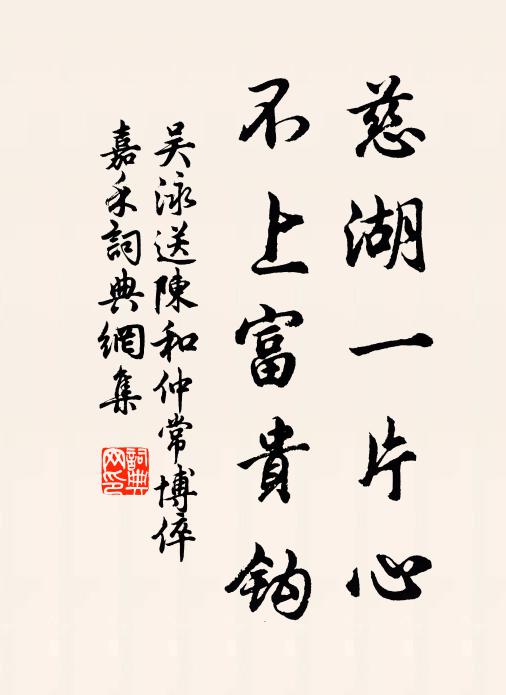 慈湖一片心
不上富貴鈎
吴泳送陳和仲常博倅
嘉禾詞典網集
詞典
网印